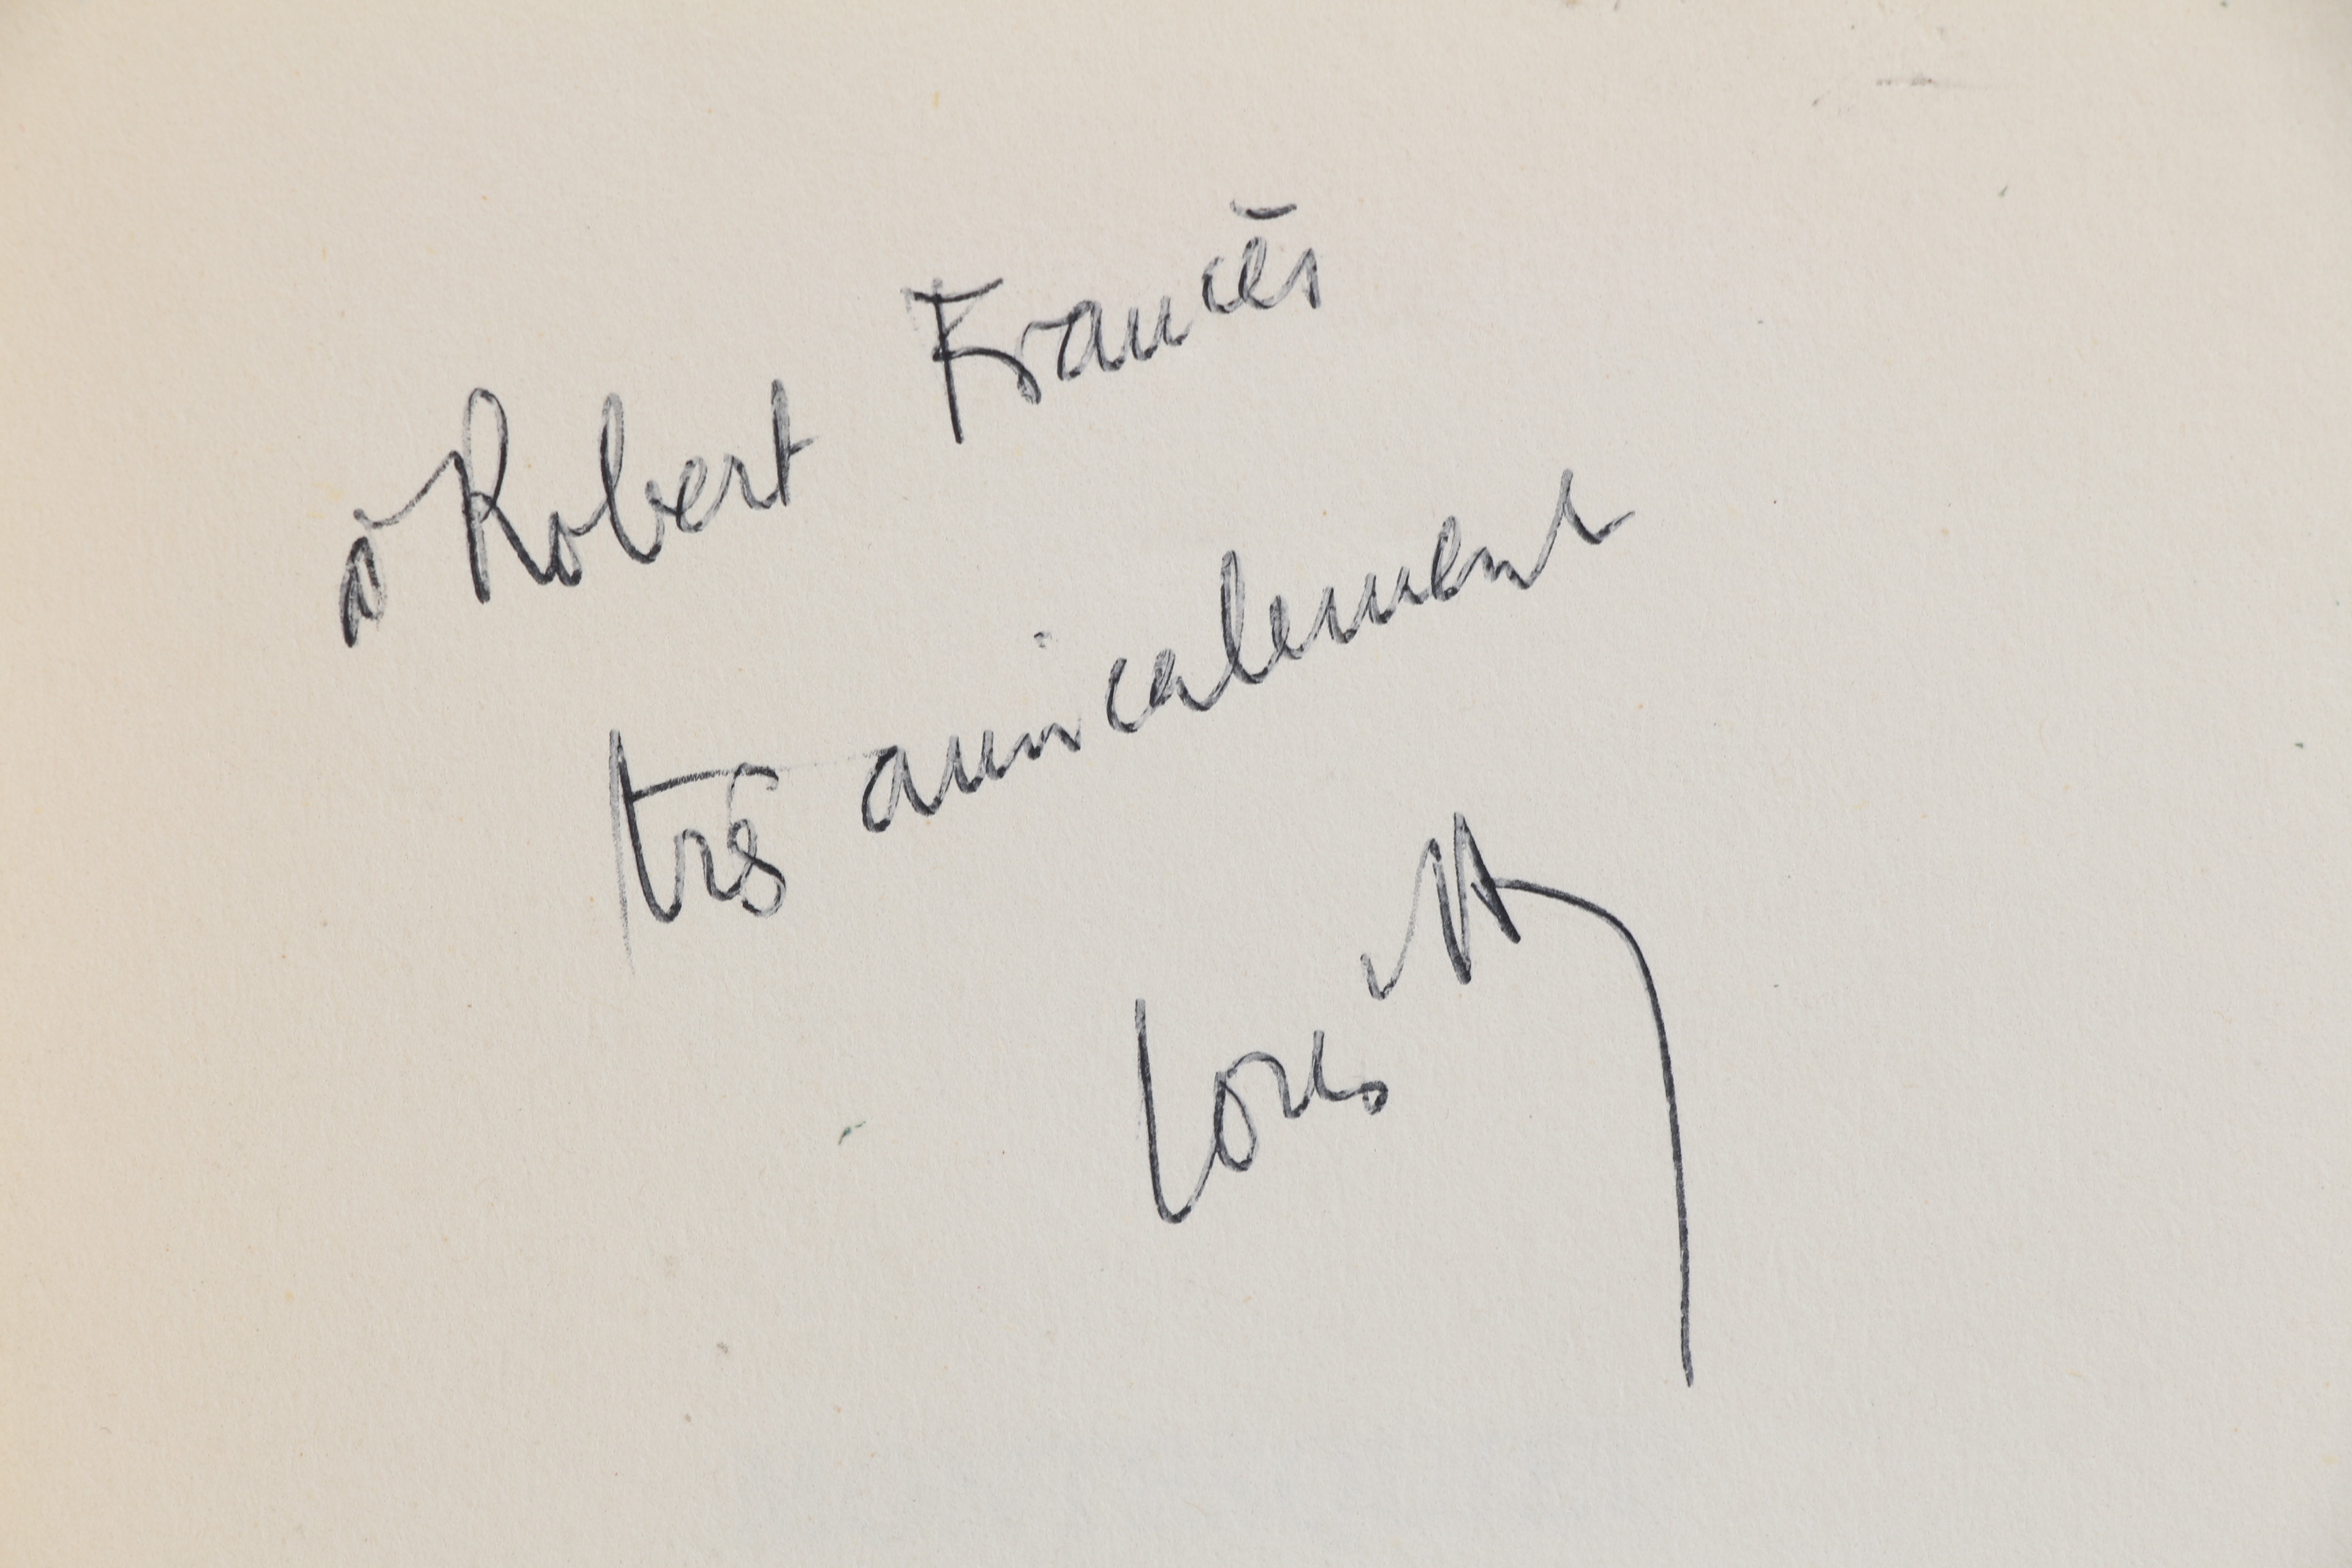 à Robert Francès
très amicalement